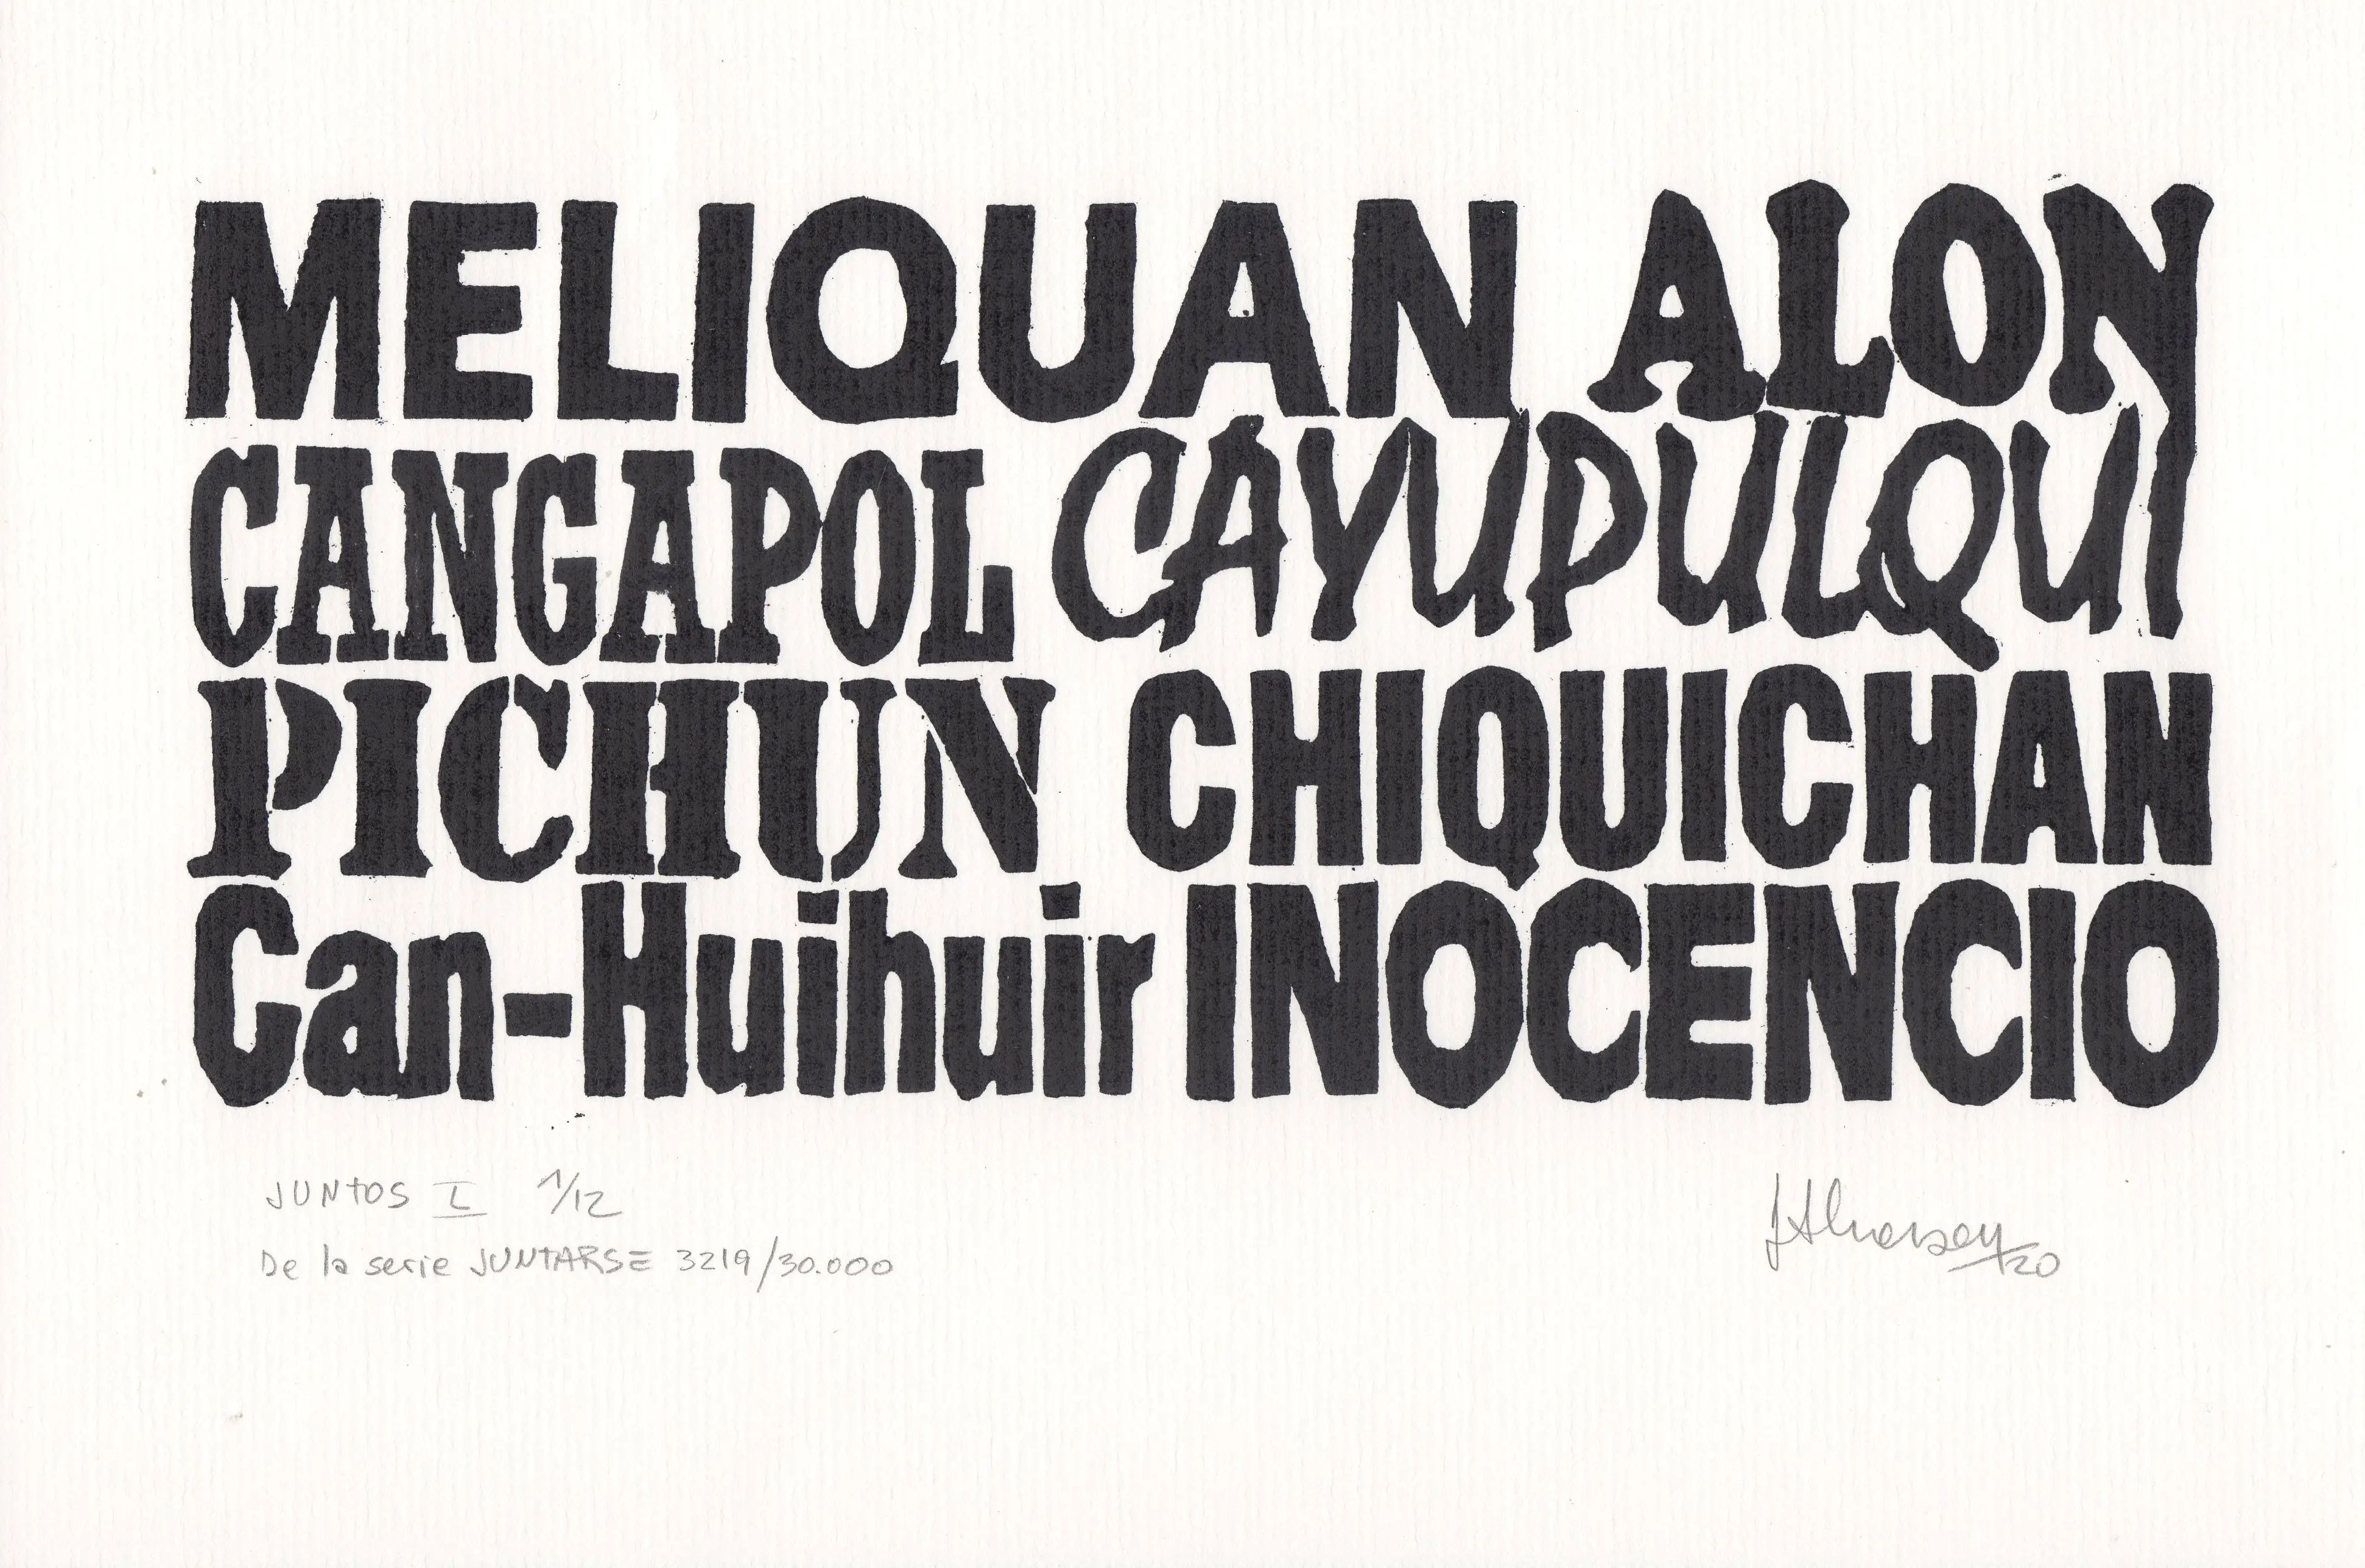 MELIQUAN ALON
CANGAPOL CAYUPULQUI
PICHUN CHIQUICHAN
Can-Huihuir INOCENCIO
JUNTOS I 1/12
De la serie JUNTARSE 3219/30.000
20